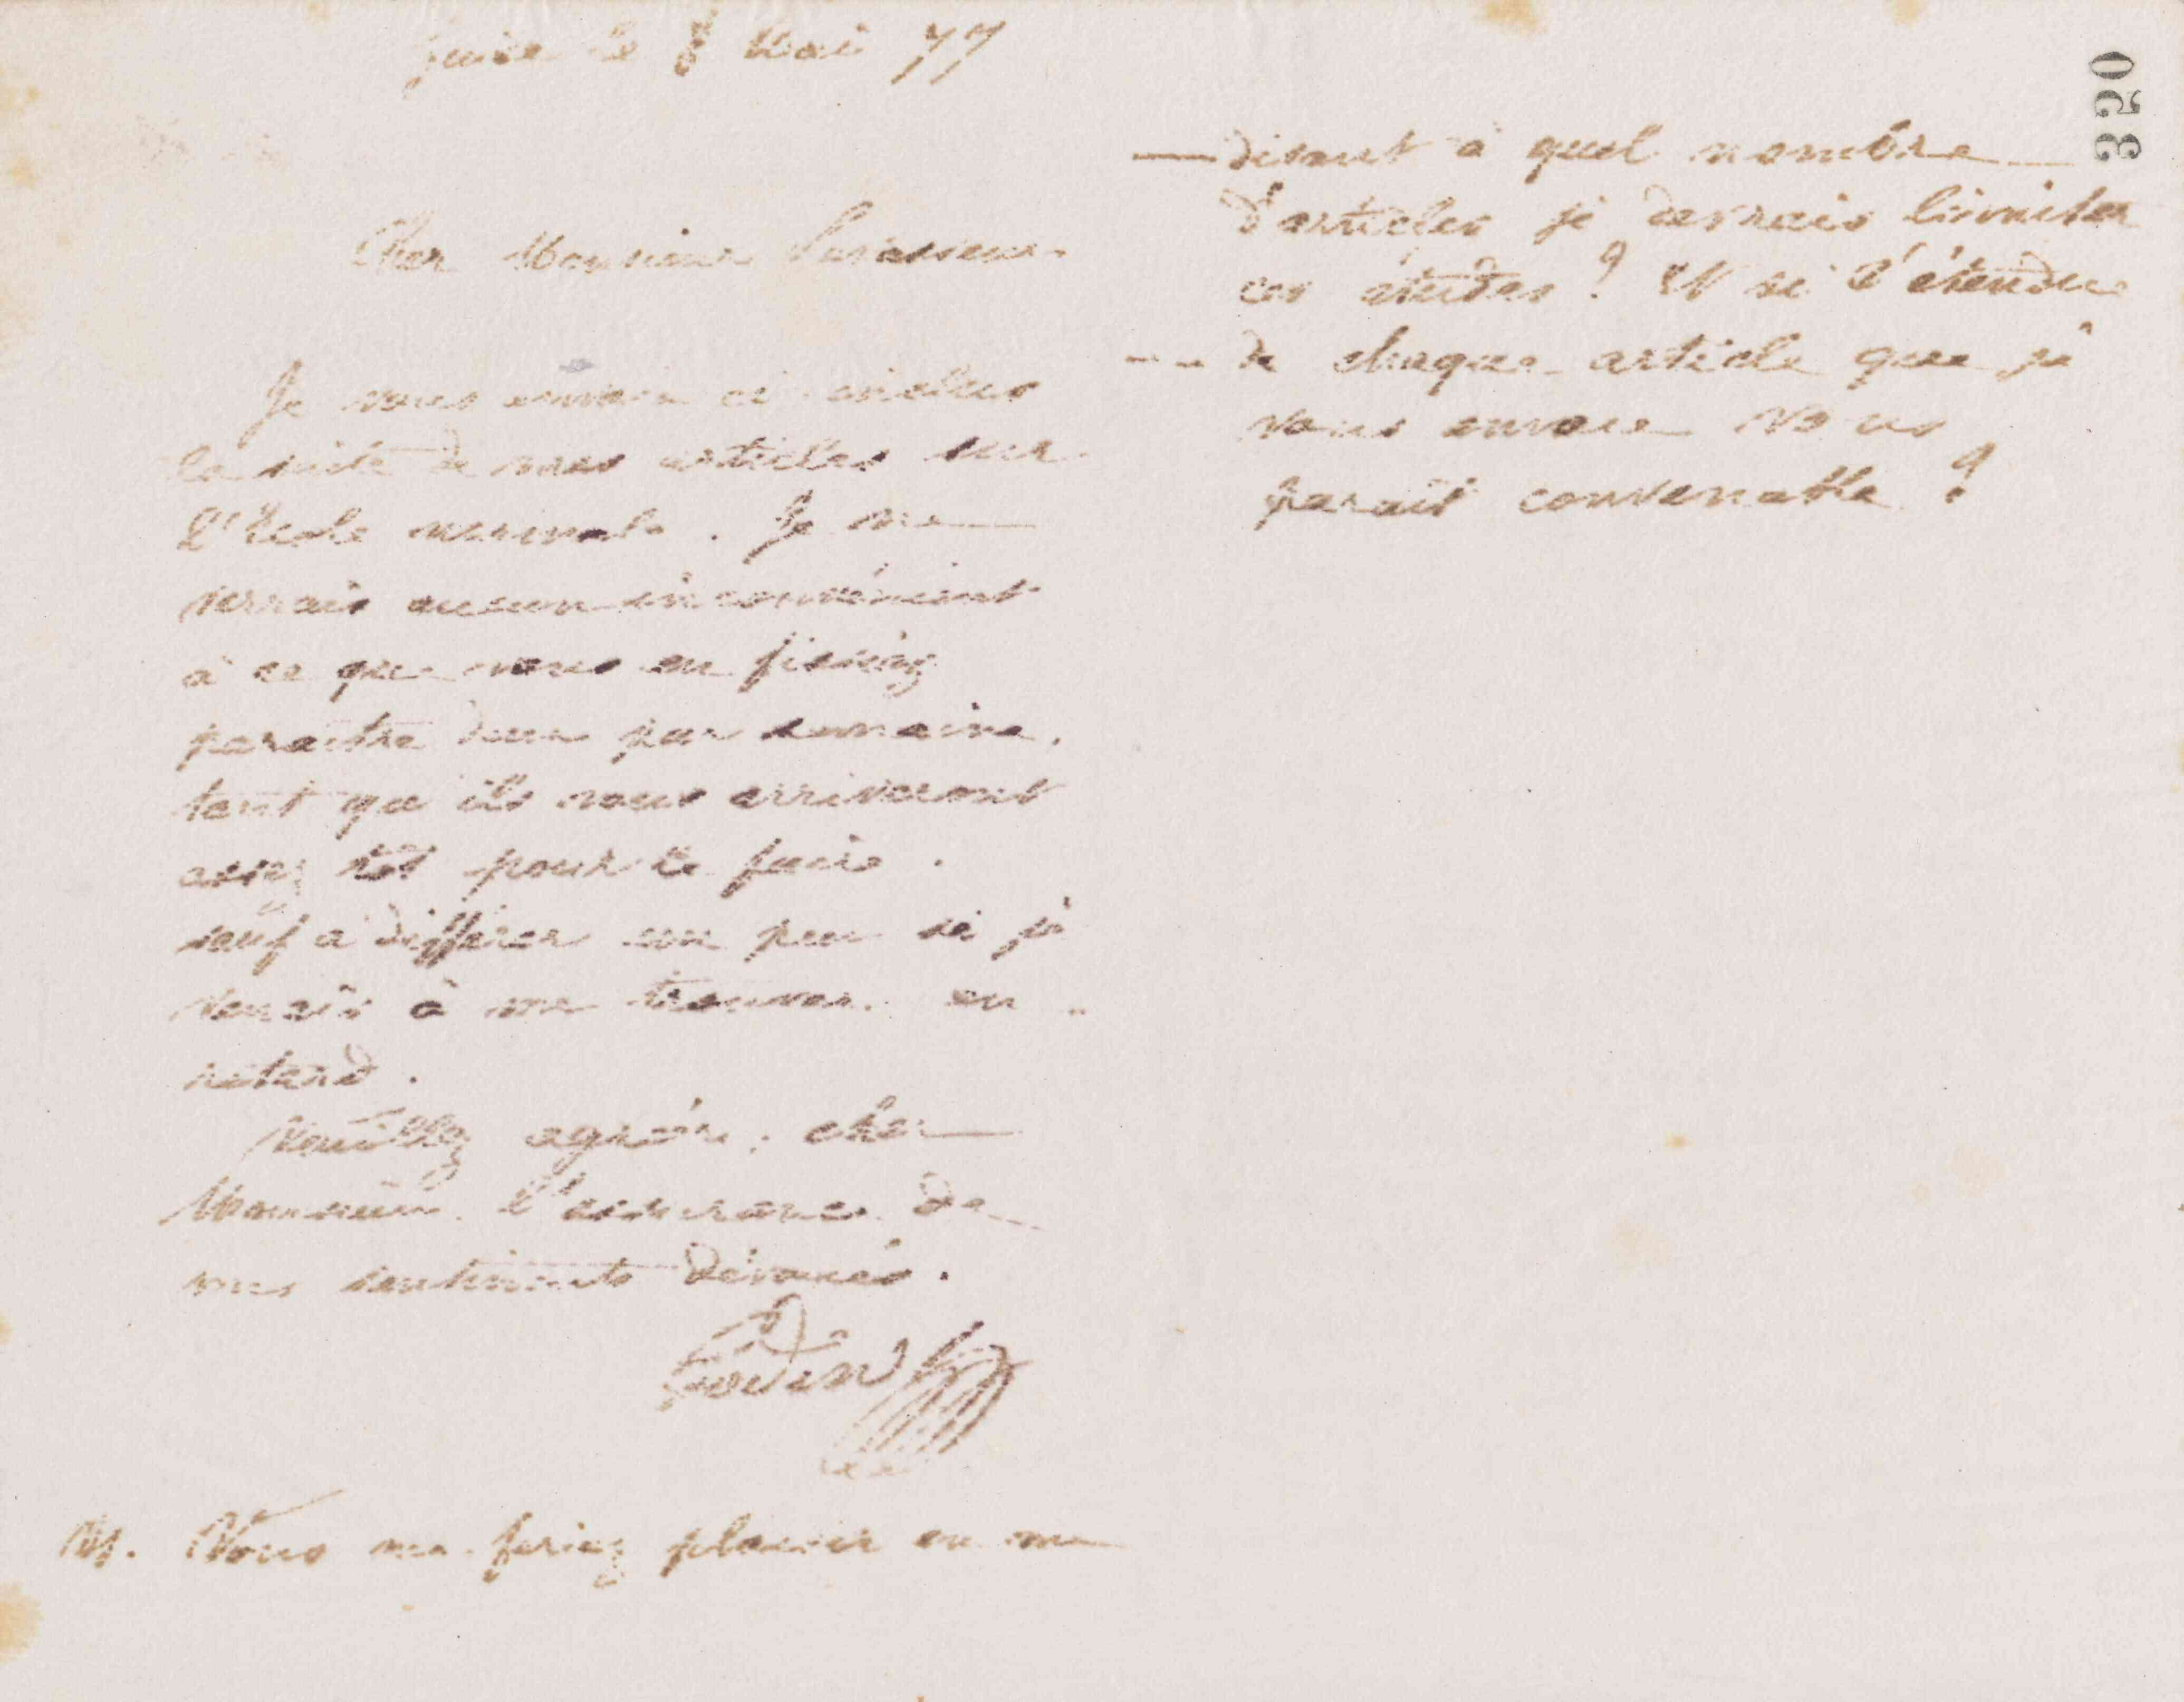 Guise le 8 Mai 77
Cher Monsieur
Je vous envoie ci-inclus
la suite de mes articles sur
l'école normale. Je ne
verrais aucun inconvénient
à ce que vous en fissiez
paraître deux par semaine.
tant qu'ils vous arriveront
assez tôt pour le faire.
sauf à différer un peu si je
venais à me trouver en
retard.
Veuillez agréer, cher
Monsieur, l'assurance de
mes sentiments dévoués.
Godin
Ps. Vous me feriez plaisir en me
disant à quel nombre
d'articles je devrais limiter
ces études ? Et si l'étendue
de chaque article que je
vous envoie vous
paraît convenable ?
350